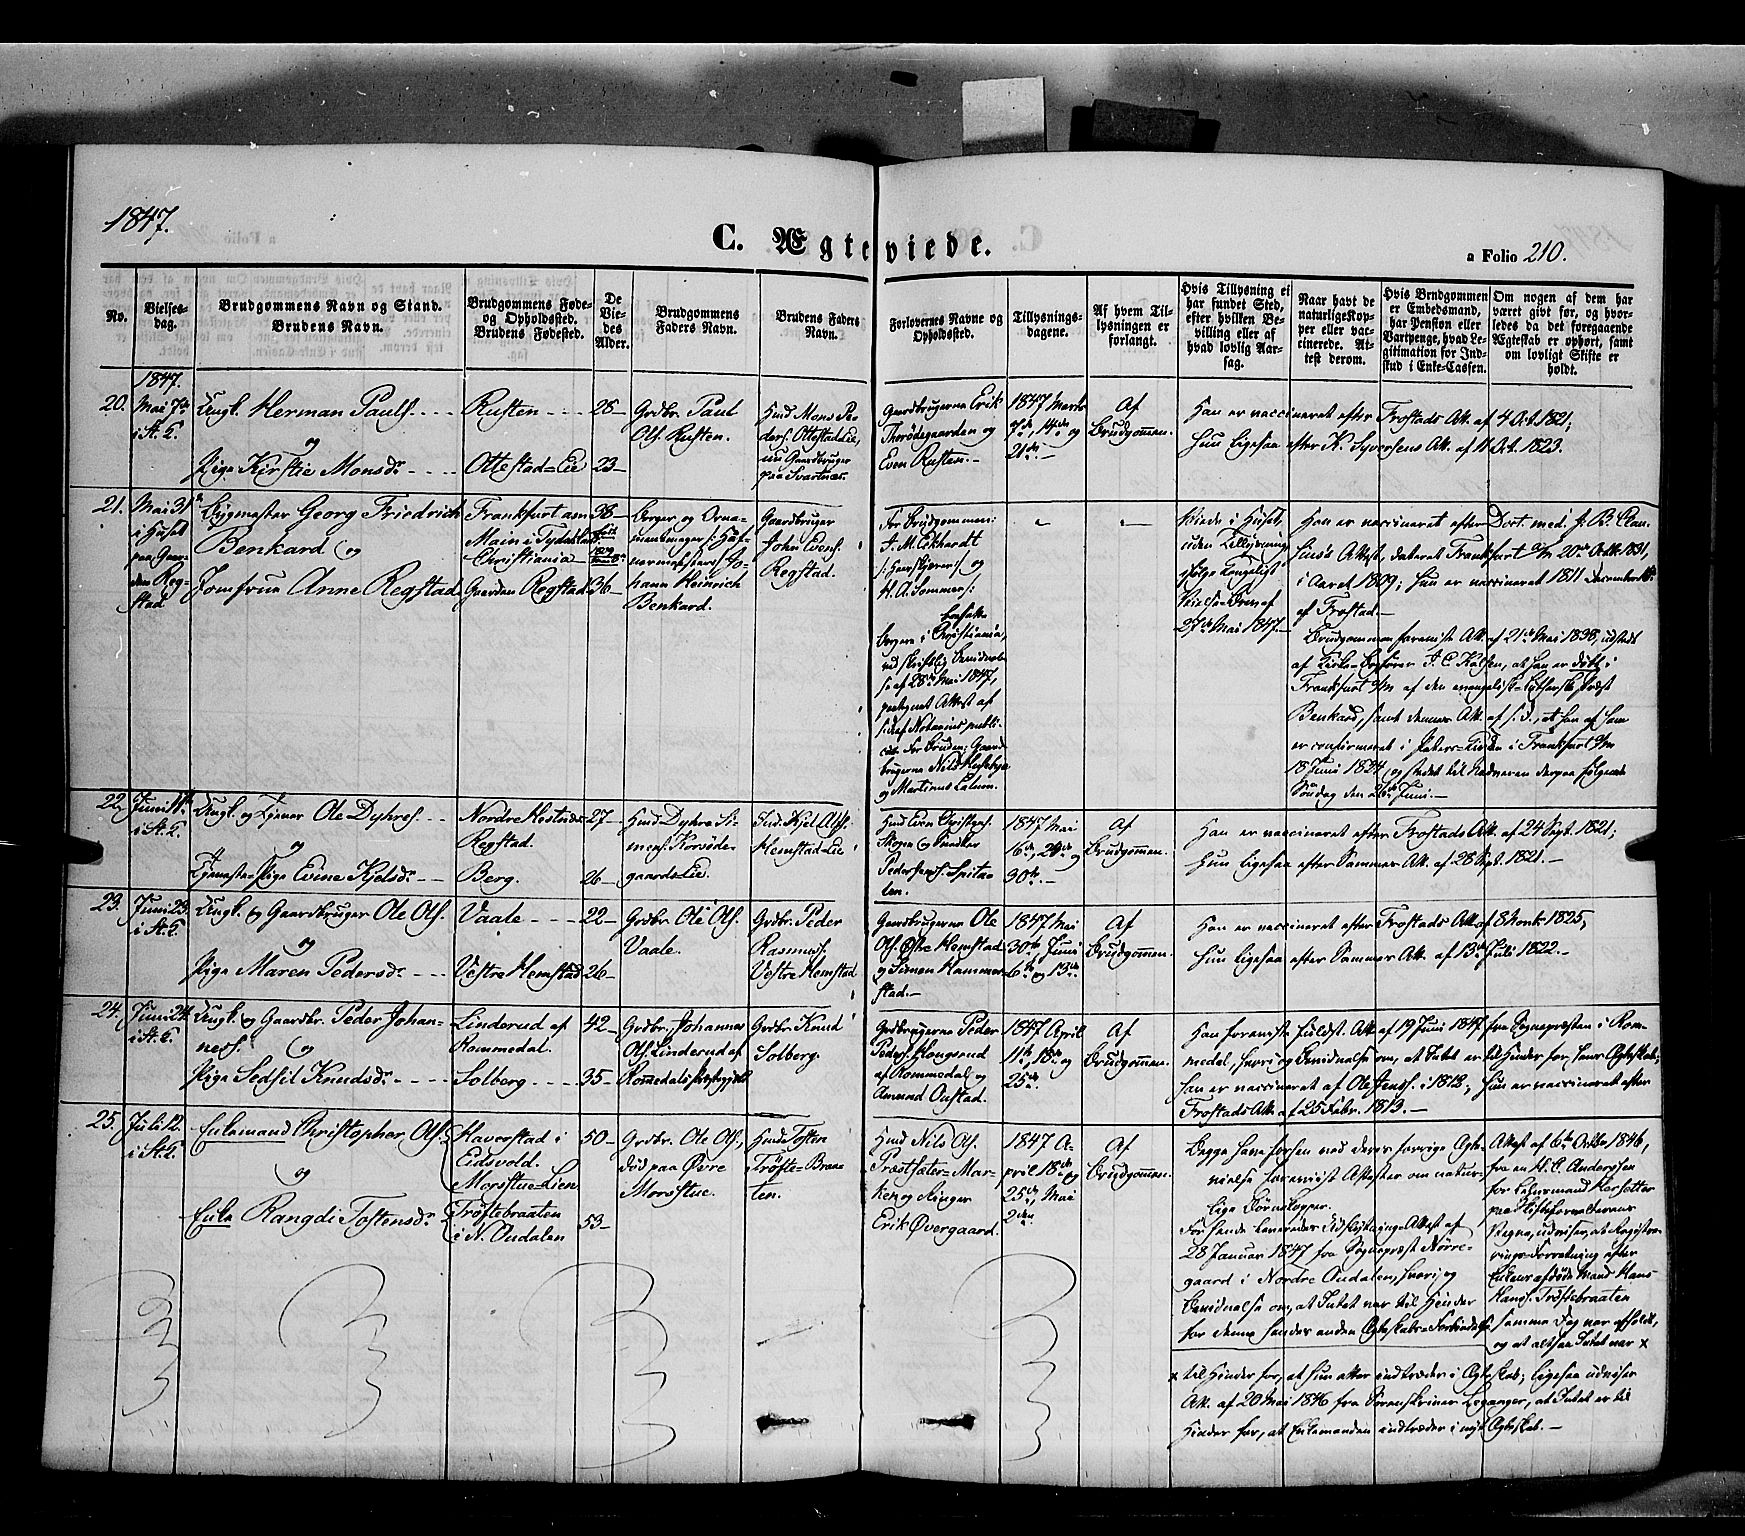 1847.
C. Ægteviede.
a Folio 210.
No.
Vielses-
dag.
Brudgommens Navn og Stand.
Brudens Navn.
Brudgommens Føde-
og Opholdssted.
Brudens Fødested.
De
Vie-
des
Alder.
Brudgommens
Faders Navn.
Brudens Faders
Navn.
Forlovernes Navne og
Opholdssted.
Tillysnings-
dagene.
Af hvem Til-
lysningen er
forlangt.
Hvis Tillysning ei
har fundet Sted,
efter hvilken Be-
villing eller af
hvad lovlig Aar-
sag.
Naar havt de
naturlige Kop-
per eller vac-
cinerede. At-
test derom.
Hvis Brudgommen
er Embedsmand,
har Pension eller
Vartpenge, hvad Le-
gitimation for Ind-
skud i Enke-Cassen.
Om nogen af dem har
været gift før, og hvor-
ledes da det foregaaende
Ægteskab er ophørt, samt
om lovligt Skifte er
holdt.
20.
1847.
Mai 7de
i St. K.
Ungk. Herman Pauls.
og
Pige Kirstie Monsdr.
Rusten
Ottestad-Eie
28
23
Grdbr. Paul
Ols. Rusten.
Hmd Mons Pe-
ders. Ottestad-Eie,
nu Gaardbruger
paa Svartnæs.
Gaardbrugerne Erik
Thorødegaarden og
Even Rusten.
1847 Marts
7de, 14de og
21de.
Af
Brudgommen.
Han er vaccineret efter Frostads Att. af 4 Oct. 1821;
hun ligesaa efter K. Syversens Att. af 11 Oct. 1823.
21.
Mai 31te
i Huset
paa Gaar-
den Reg-
stad
Bygmester Georg Friedrich
Benkard og
Jomfrue Anne Regstad
Frankfurt am
Main i Tydskland
Christiania
Gaarden Regstad
38
36
Borger og Orna-
mentmager
Johann Heinrich
Benkard.
Gaardbruger
John Evens.
Regstad.
For Brudgommen:
J. M. Eckhardt
og
H. A. Sommer
Borgere i Christiania,
ved skriftlig Bevidnel-
se af 28de Mai 1847,
paategnet Attest af
Notarius publi-
cus. For Bruden: Gaard-
brugerne Nils Huseby
og Martinus
Viede i Huset,
uden Tillysning
ifølge Kongeligt
Vielse-Brev af
27de Mai 1847.
Han er vaccineret efter Doct. med. J. B. Clau-
Attest, dateret Frankfurt a/m 20de Octb. 1831,
i Aaret 1809; hun er vaccineret 1811 December
af Frostad.
Brudgommen foreviste Att. af 21de Mai 1838, udstedt
af Kirke-Bogfører at han er døbt i
Frankfurt a/m af den evangelisk-lutherske Præst
Benkard, samt dennes Att. af s. D., at han af ham
er confirmeret i Peters-Kirken i Frankfurt a/m
18 Juni 1824 og stedet til Nadveren derpaa følgende
Søndag den 20de Juni.
22.
Juni 11te
i St. K.
Ungk. og Tjener Ole Dyhres.
og
Tjenestepige Evine Kjelsdr.
Nordre Hestnæs
Regstad.
Berg.
27
26
Hmd Dyhre Si-
mens. Korsøde-
gaards-Eie.
Ind. Kjel Ols.
Hemstad-Eie
Hmd Even Christophs.
Skone og Snedker
Peder Spita-
len.
1847 Mai
16de, 24de og
30te.
Af
Brudgommen.
Han er vaccineret efter Frostads Att. af 24 Sept. 1821;
hun ligesaa efter Sommer Att. af 28 Sept. 1821.
23.
Juni 23.
i St. K.
Ungk. og Gaardbruger Ole Ols.
og
Pige Maren Pedersdr.
Vaale
Vestre Hemstad
22
26
Grdbr. Ole Ols.
Vaale.
Grdbr. Peder
Rasmuss.
Vestre Hemstad
Gaardbrugerne Ole
Ols. Østre Hemstad
og Simen Hammer-
stad.
1847 Mai
30te, Juni
6te og 13de.
Af
Brudgommen.
Han er vaccineret efter Frostads Att. af 8 1825,
hun ligesaa efter Sommer Att. af 13de Juli 1822.
24.
Juni 24.
i St. K.
Ungk. og Gaardbr. Peder Johan-
ness.
og
Pige Sedsil Knudsdr.
Linderud af
Rommedal.
Solberg
42
35
Grdbr. Johannes
Ols. Linderud af
Romedals Præstegjeld
Grdbr. Knud
Solberg.
Grdbrugerne Peder
Peders. Kongsrud
af Rommedal og
Amund Oustad.
1847 April
11te, 18de og
25de.
Af
Brudgommen.
Han foreviste Attest af 19 Juni 1847 fra Sognepræsten i Rom-
medal, hvori Bevidnelse om, at Intet er til Hinder for hans Ægteskab;
han er vaccineret af Ole Jenss. i 1812; hun er vaccineret efter
Frostads Att. af 25 Febr. 1813.
25.
Juli 12.
i St. K.
Enkemand Christopher Ols.
og
Enke Rangdi Tostensdr.
Haverstad i
Eidsvold.
Morstue-Eien
Trøftebraaten
i N. Oudalen
50
53
Grdbr. Ole Ols.,
død paa Øvre
Morstue.
Hmd Tosten
Trøfte-Braa-
ten.
Hmd Nils Ols.
Præstsæter-Mar-
ken og Ringer
Erik Øvergaard.
1847 A-
pril 18de og
25de, Mai
2den.
Af
Brudgommen.
Begge have forhen ved deres forrige Ægte-
vielse forevist Attester om natur-
lige Børnekopper.
For hende leveredes Udflytnings-Attest af
28 Januar 1847 fra Sognepræst Nørre-
gaard i Nordre Oudalen, hvori og
Bevidnelse om, at Intet var til Hinder
for denne hendes anden Ægteskabs-Forbindelse
Attest af 6te Octbr. 1846,
fra en H. C. Andersen
for Lehnsmand Korsetter
paa Skifteforvalterens
Vegne, udviser, at Registre-
rings-Forretning efter
Enkens afdøde Mand Hans
Hans. Trøftebraaten
samme Dag var afholdt,
og at altsaa Intet var x
x til Hinder for, at hun atter indtræder i Ægteskab; ligesaa udviser
Att. af 20 Mai 1846 fra Sorenskriver Leganger, at Intet er til
Hinder for, at Enkemanden indtræder i nyt Ægteskab.